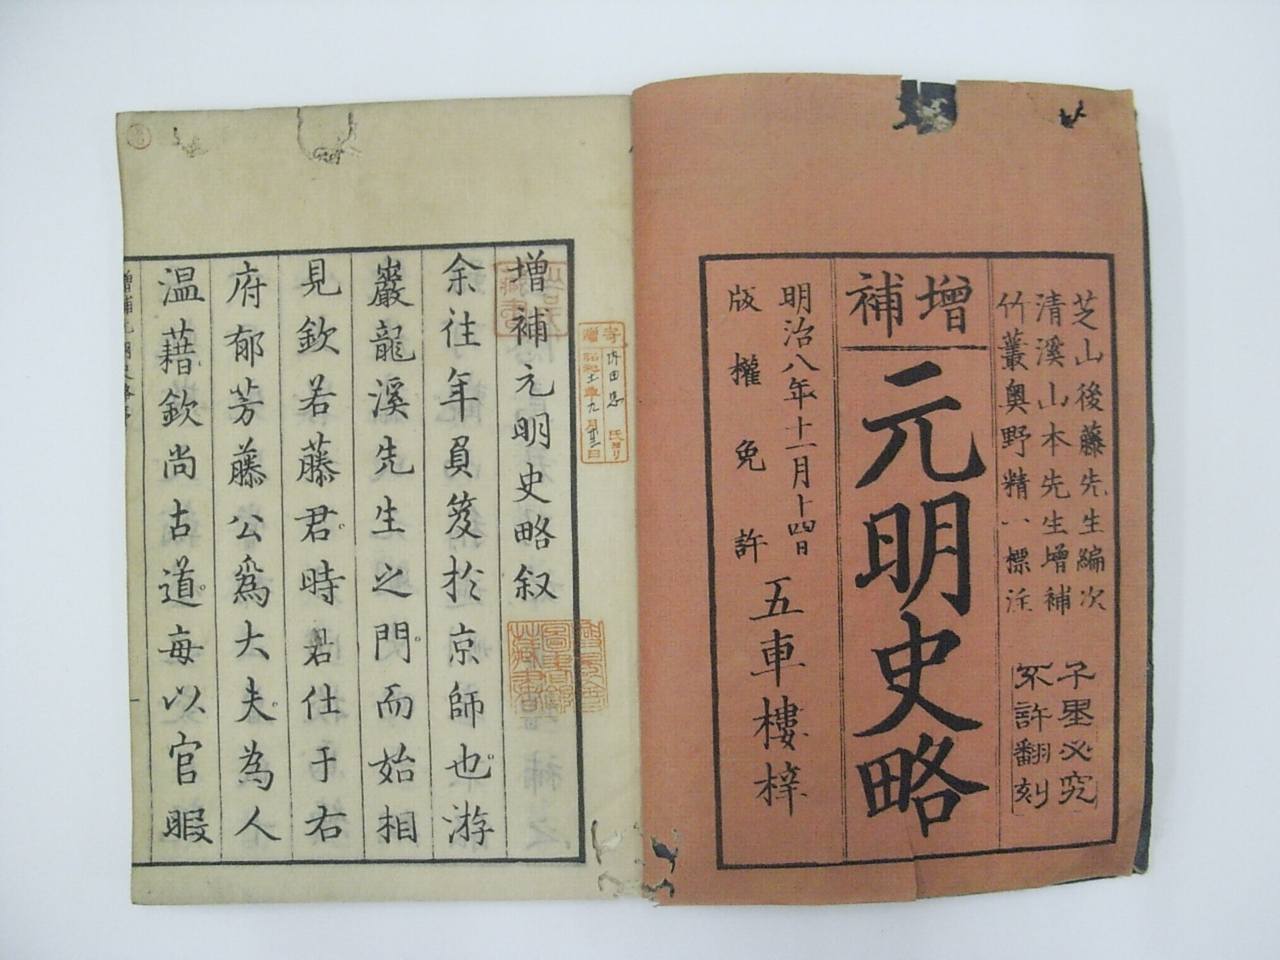 芝山後藤先生編次
清溪山本先生增補
竹叢奧野精一標注
子里必究
不許翻刻
增補
元明史略
明治八年十一月十四日
版權免許
五車樓梓
增補元明史略叙
余往年負笈於京師也游
巖龍溪先生之門而始相
見欽若藤君時君仕于右
府郁芳藤公爲大夫為人
溫藉欽尚古道每以官暇
寄贈
氏ヨリ
藏書
圖書館
藏書